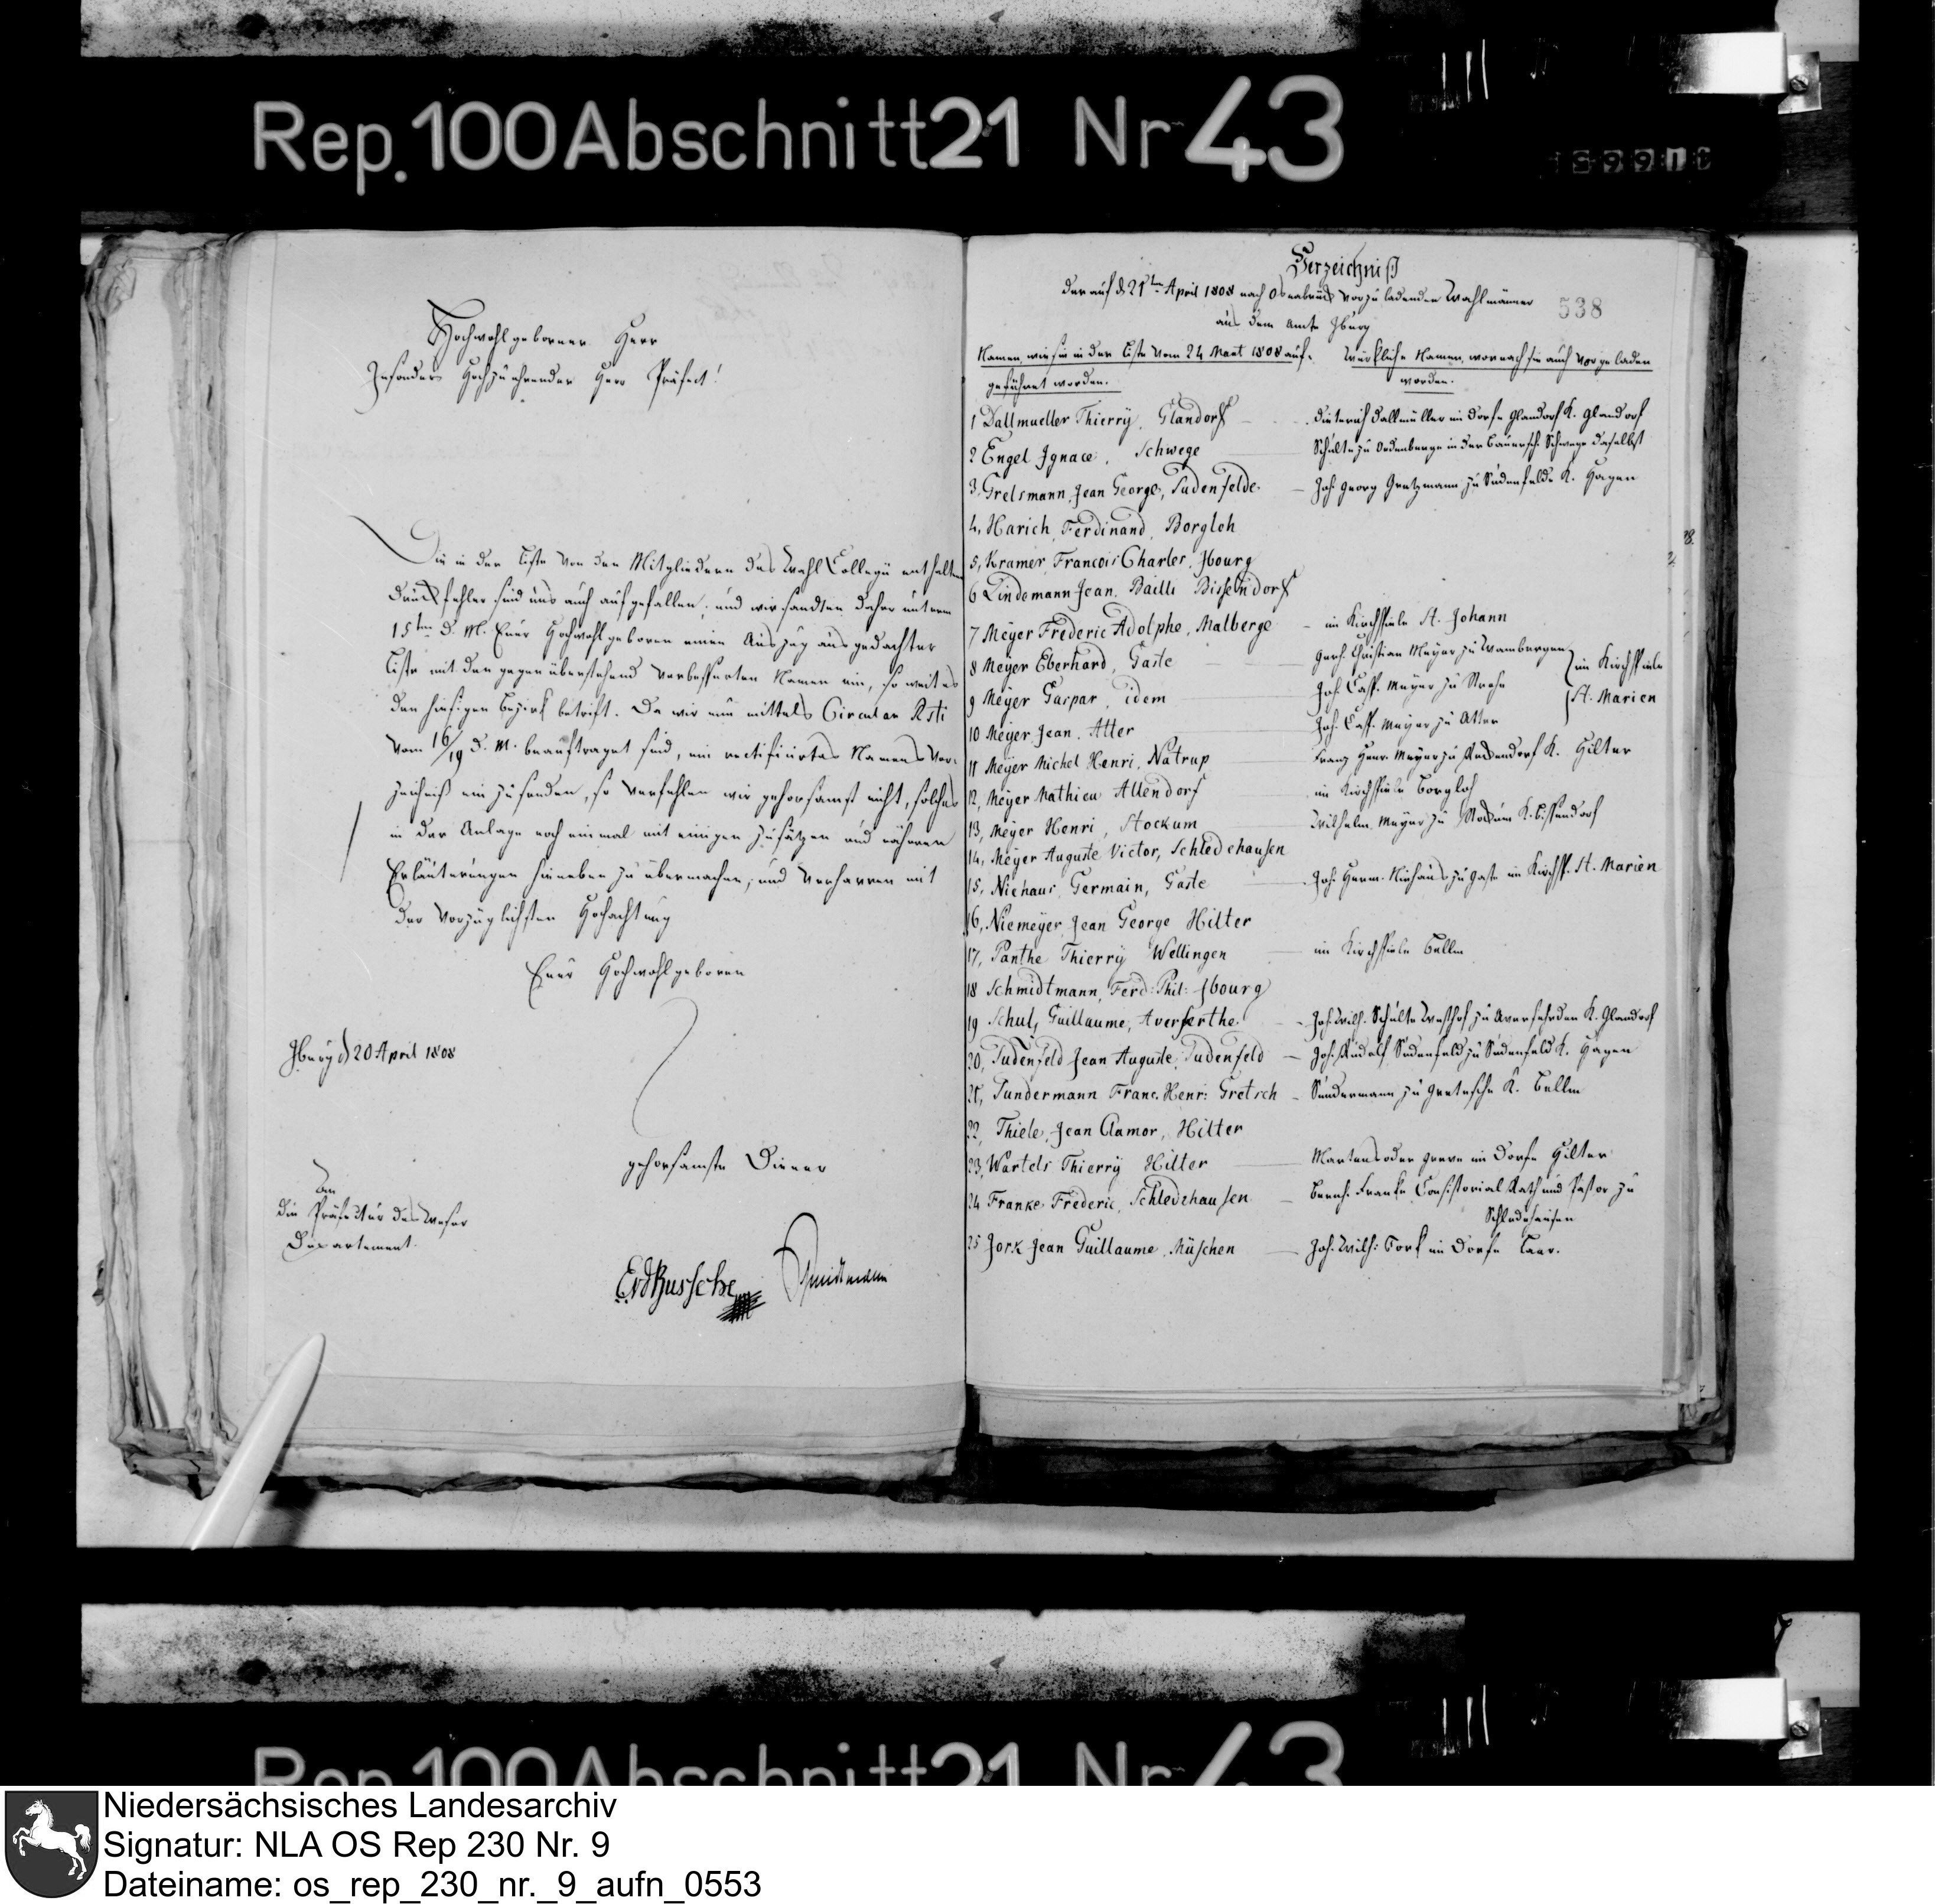 Rep. 100 Abschnitt 21 Nr 43
Hochwohlgeborner Herr
Insonders Hochzuehrender Herr Präfect!
Die in der Liste von den Mitgliedern des Wahl Collegii enthaltene
Druckfehler sind uns auch aufgefallen; und wir sandten daher unterm
15ten d. M. Euer Hochwohlgeboren einen Auszug aus gedachter
Liste mit den gegenüberstehend verbesserten Namen ein, so weit es
den hiesigen Bezirk betrift. Da wir nun mittels Circular Rsti
vom 16/19 d. M. beauftraget sind, ein rectificirtes Namens Ver-
zeichniß einzusenden, so verfehlen wir gehorsamst nicht, solches
in der Anlage noch einmal mit einigen Zusätzen und nähern
Erläuterungen hineben zu übermachen, und verharren mit
der vorzüglichsten Hochachtung
Euer Hochwohlgeboren
Iburg d 20 April 1808
gehorsamste Diener
An
die Präfectur des Weser
Departement.
EvdBussche Schmidtmann
Verzeichniß
der auf d. 21ten April 1808 nach Osnabrück vorzuladenden Wahlmänner
538
aus dem Amte Iburg
Namen, wie sie in der Liste vom 24 Maert 1808 auf-
geführet worden.
Würkliche Namen, wornach sie auch vorgeladen
worden.
1 Dallmueller Thierry, Glandorf - Dieterich Dallmüller im Dorfe Glandorf K. Glandorf
2 Engel Ignace, Schwege Schulte zu Ordenberge in der Bauersch. Schwege daselbst
3, Gretsmann, Jean George, Sudenfelde - Joh. Georg Gretzmann zu Sudenfelde K. Hagen
4, Harich, Ferdinand, Borgloh
5, Kramer, Francois Charles, Ibourg
6 Lindemann Jean. Bailli Bissendorf
7 Meyer Frederic Adolphe, Malberge - im Kirchspiele St. Johann
8 Meyer Eberhard, Gaste - Gerh. Christian Meyer zu Wambergen } im Kirchspiele
9 Meyer Gaspar, idem Joh. Casp. Meyer zu Strohe } St. Marien
10 Meyer, Jean, Atter Joh. Casp. Meyer zu Atter
11 Meyer Michel Henri, Natrup Franz Henr. Meyer zu K. Hilter
12, Meyer Mathieu Allendorf im Kirchspiele Borgloh
13, Meyer Henri, Stockum Wilhelm Meyer zu Stockum K. Bissendorf
14, Meyer Auguste Victor, Schledehausen
15, Niehaus, Germain, Gaste Joh. Herm. Niehaus zu Gaste im Kirchsp. St. Marien
16, Niemeyer, Jean George Hilter
17, Panthe Thierry Wellingen im Kirchspiele Bellm
18 Schmidtmann, Ferd: Phil: Ibourg
19 Schul, Guillaume, Averferthe - Joh. Wilh. Schulte Westhof zu Averfehrden K. Glandorf
20, Sudenfeld Jean Auguste, Sudenfeld - Joh. Rudolf Sudenfeld zu Sudenfeld K. Hagen
21, Sundermann Franc. Henri: Gretsch - Sundermann zu Gretesche K. Bellm
22, Thiele, Jean Clamor, Hilter
23, Wartels Thierry Hilter Martens oder Greve im Dorfe Hilter
24 Franke Frederic, Schledehausen - Bernh. Franke Consistorial Rath und Pastor zu
Schledehausen
25 Jork Jean Guillaume, Müschen - Joh. Wilh: Tork im Dorfe Laer.
Rep. 100 Abschnitt 21 Nr 43
Niedersächsisches Landesarchiv
Signatur: NLA OS Rep 230 Nr. 9
Dateiname: os_rep_230_nr._9_aufn_0553